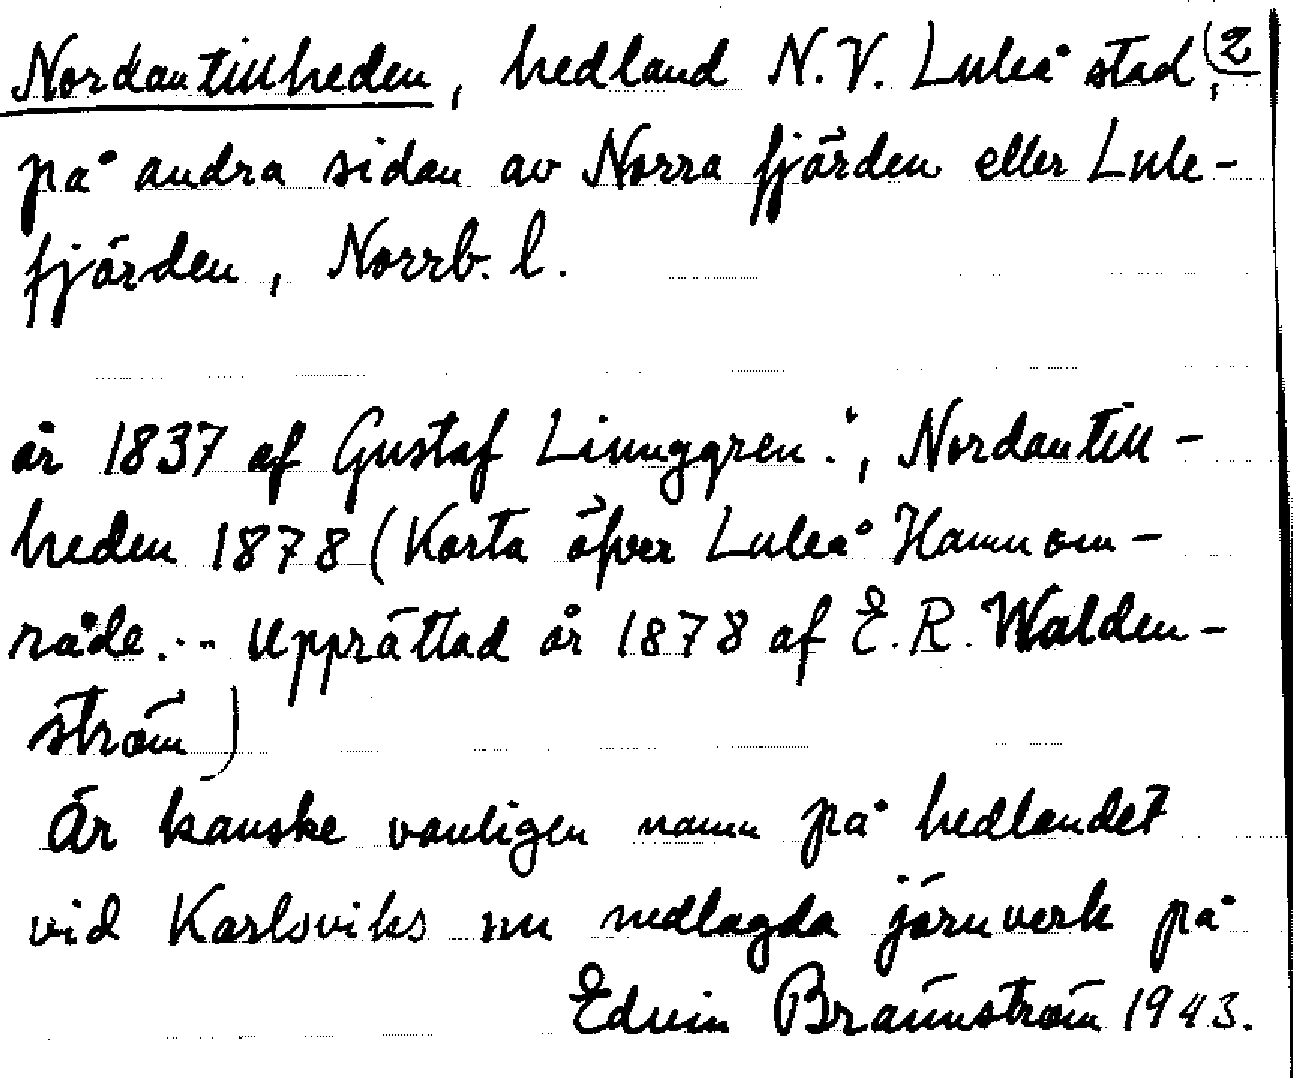 Nordantillheden, hedland N.V. Luleå stad, (2
på andra sidan av Norra fjärden eller Lule-
fjärden, Norrb. l.
år 1837 af Gustaf Linnggren:, Nordantill-
heden 1878 (Karta öfver Luleå Hamnom-
råde... Upprättad år 1878 af E. R. Walden-
ström)
Är kanske vanligen namn på hedlandet
vid Karlsviks nu nedlagda järnverk på
Edvin Brännström 1943.